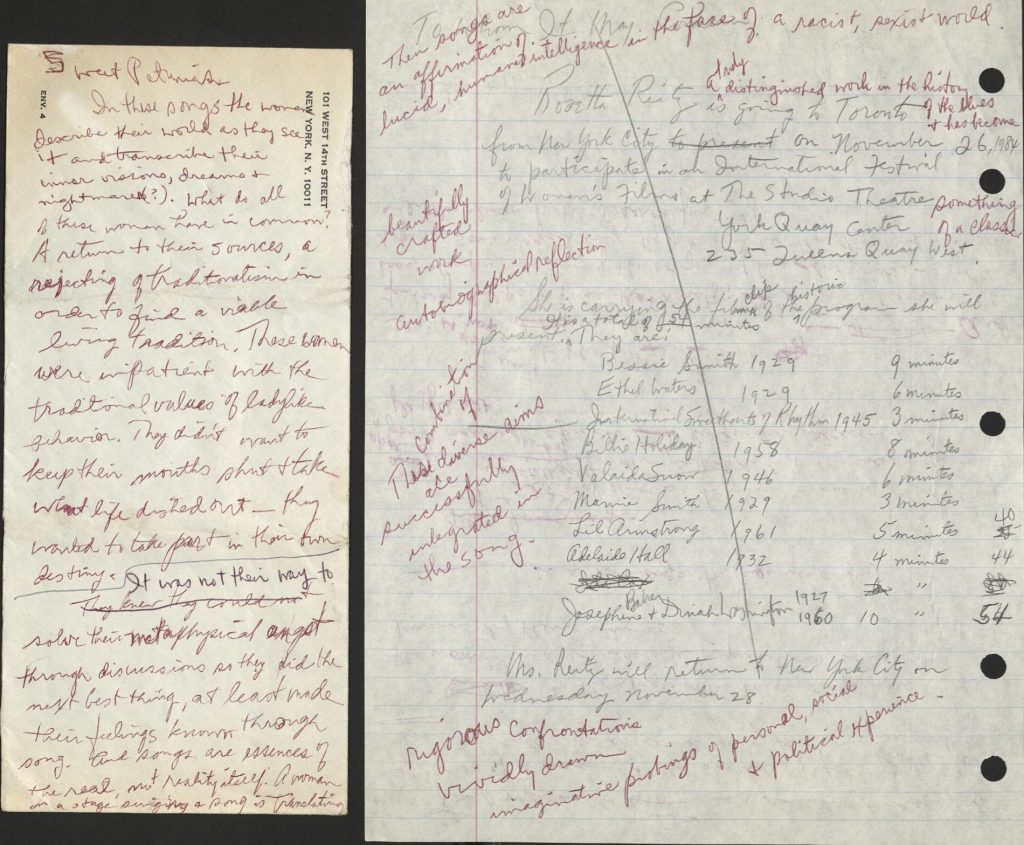 Sweet Petunias
In these songs the women
describe their world as they see
it and transcribe their
inner visions, dreams +
nightmares(?). What do all
of these women have in common?
A return to their sources, a
rejecting of traditionalism in
order to find a viable
living tradition. These women
were impatient with the
traditional values of ladylike
behavior. They didn't want to
keep their mouths shut + take
what life dished out — they
wanted to take part in their own
destiny. It was not their way to
They knew they could not
solve their metaphysical angst
through discussions so they did the
next best thing, at least made
their feelings known through
song. And songs are essences of
the real, not reality itself. A woman
on a stage singing a song is translating
ENV. 4
101 WEST 14TH STREET
NEW YORK, N. Y. 10011
To Whom It May Concern
Their songs are
an affirmation of
lucid, human intelligence in the face of a racist, sexist world.
a truly
distinguished work in the history
of the blues
+ has become
something
of a classic
Rosetta Reitz is going to Toronto
from New York City to present on November 26, 1984
to participate in an International Festival
of Women's Films at The Studio Theatre
York Quay Center
235 Queens Quay West.
beautifully
crafted
work
autobiographical reflection
She is carrying the film clip of the historic program she will
It is a total of 54 minutes
present. They are:
Bessie Smith 1929 9 minutes
Ethel Waters 1929 6 minutes
International Sweethearts of Rhythm 1945 3 minutes
Billie Holiday 1958 8 minutes
Valaida Snow 1946 6 minutes
Mamie Smith 1929 3 minutes
Lil Armstrong 1961 5 minutes 40
Adelaide Hall 1932 4 minutes 44
Josephine Baker + Dinah Washington 1927 1960 10 " 54
Combination
of
These diverse aims
are
successfully
integrated in
the song.
Ms. Reitz will return to New York City on
Wednesday November 28.
rigorous confrontations
vividly drawn
imaginative probings of personal, social
+ political experience -